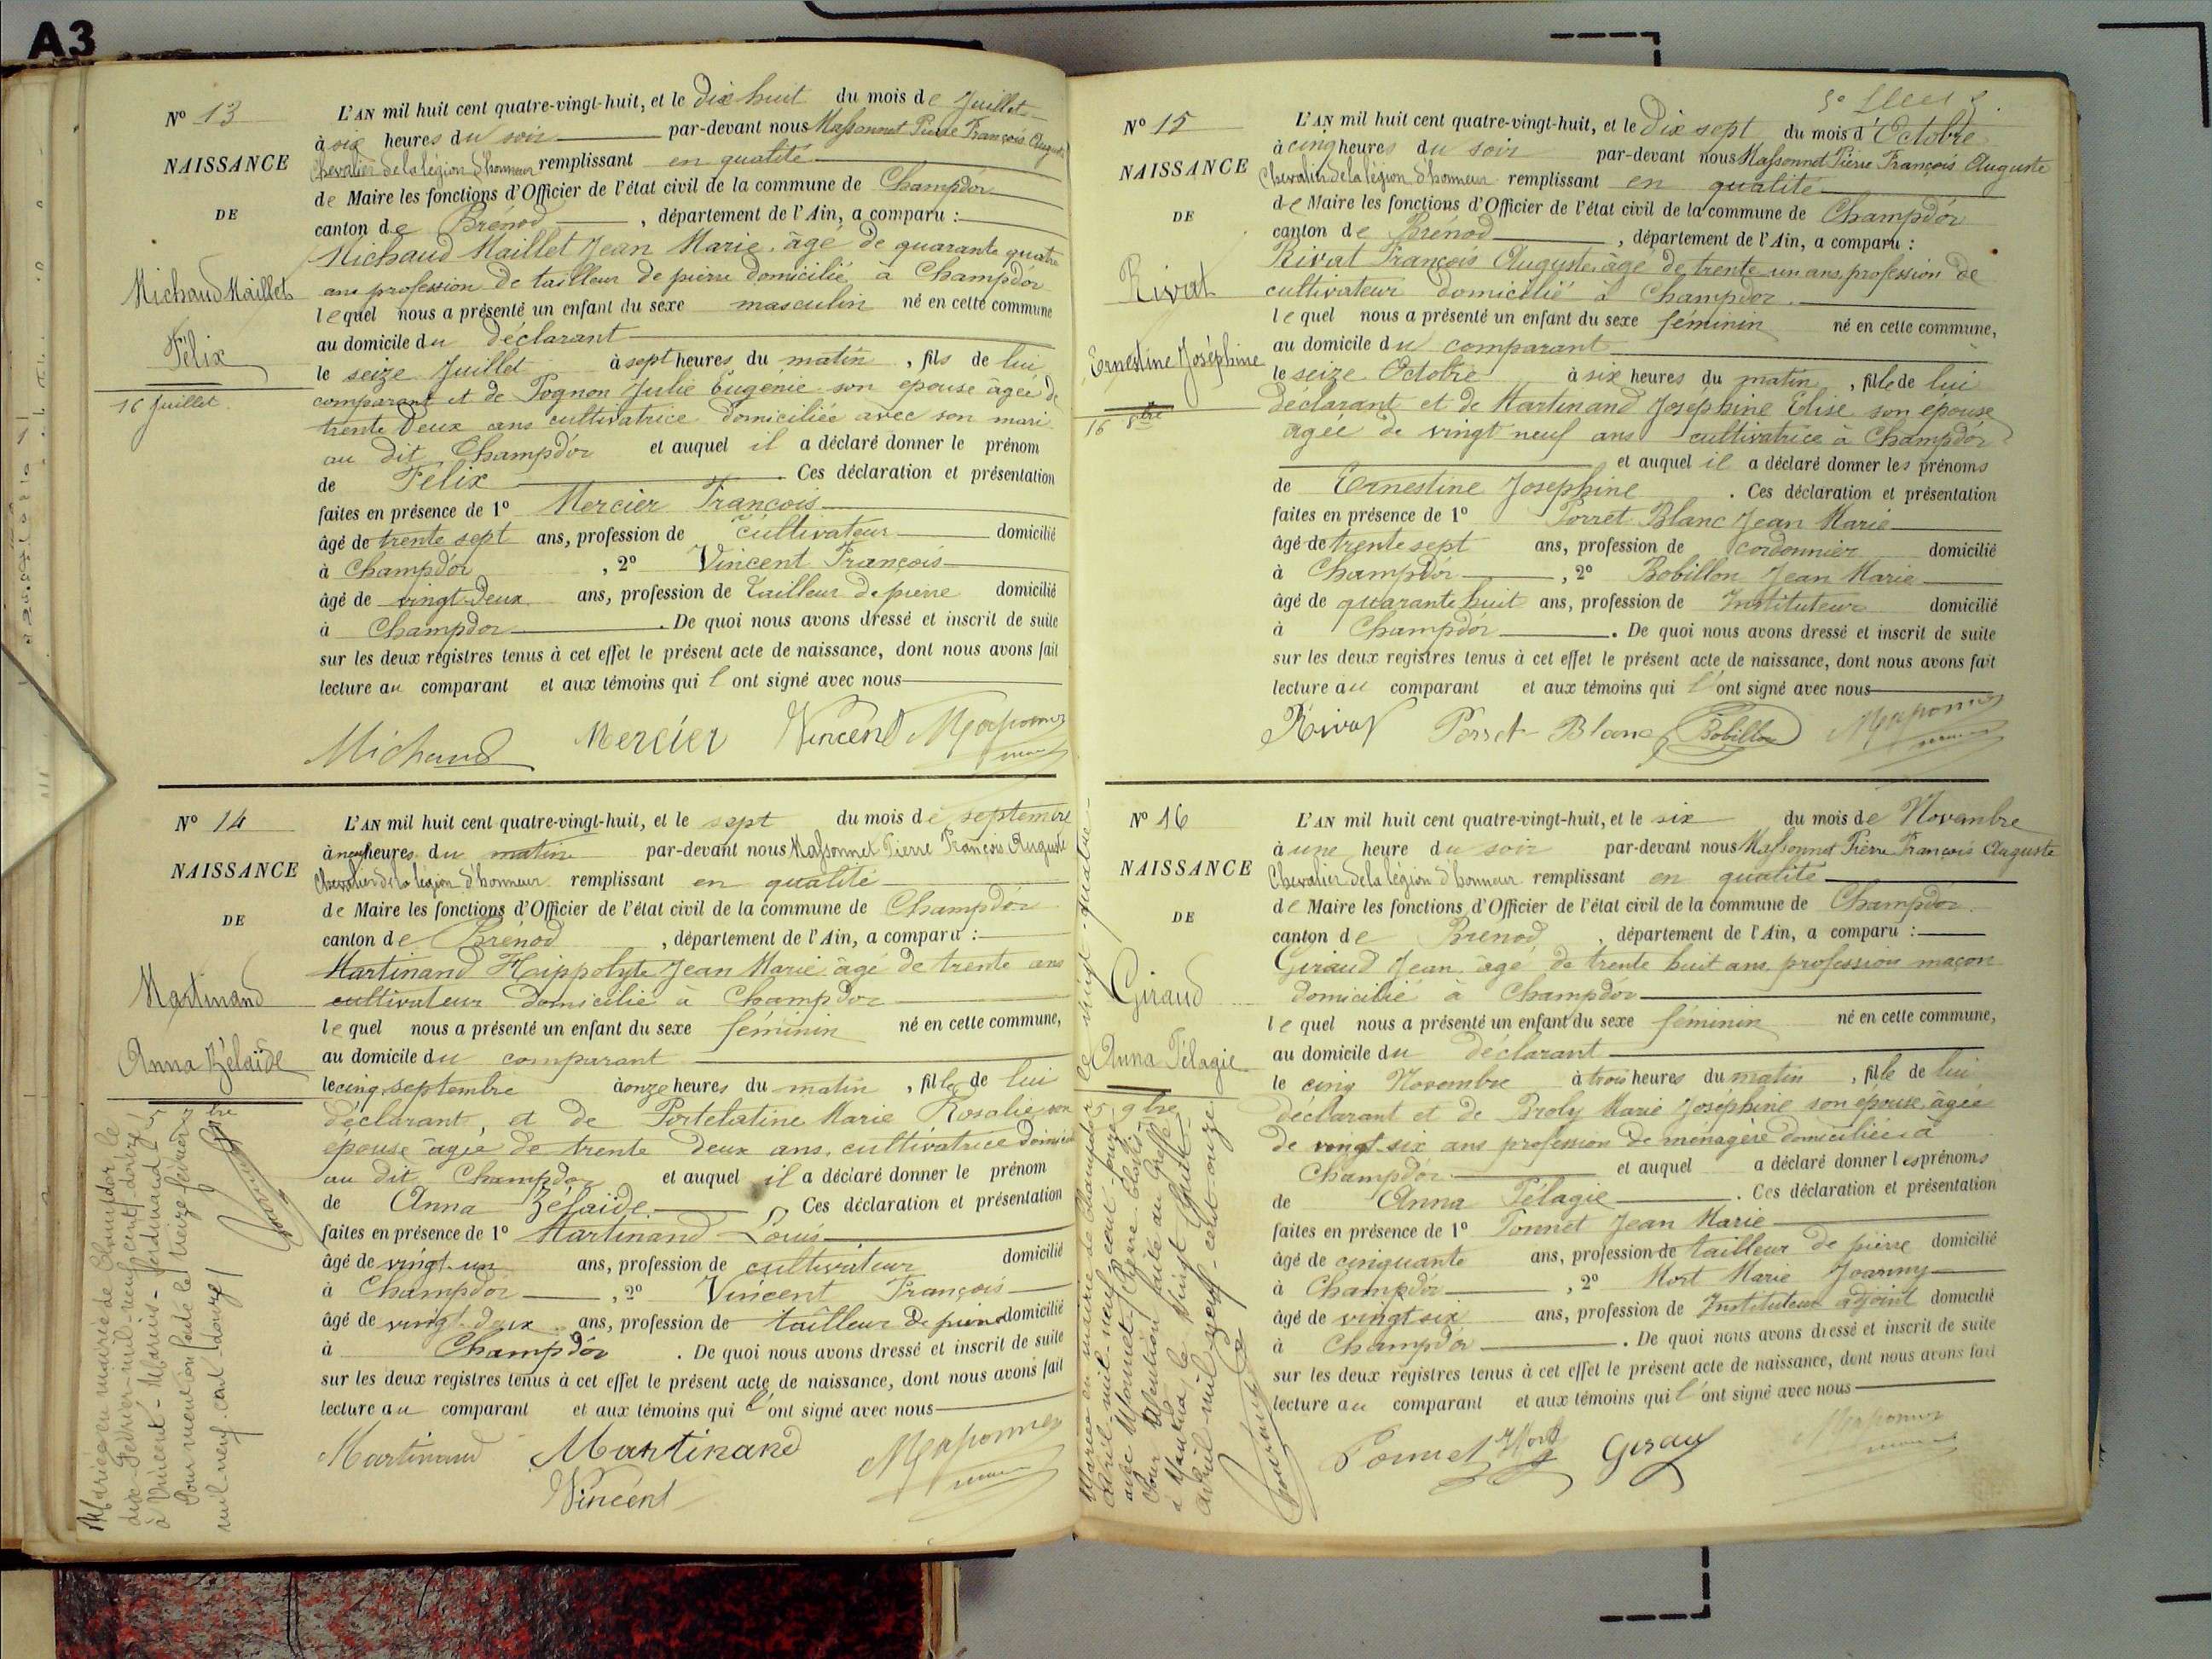 A3
Nº 13
NAISSANCE
DE
Michaud Maillet
Félix
16 Juillet
L'AN mil huit cent quatre-vingt-huit, et le Dix huit du mois de Juillet
à six heures du soir par-devant nous Massonnet Pierre François Auguste
Chevalier de la légion d'honneur remplissant en qualité
de Maire les fonctions d'Officier de l'état civil de la commune de Champdor
canton de Brénod, département de l'Ain, a comparu :
Michaud Maillet Jean Marie, âgé de quarante quatre
ans profession de tailleur de pierre domicilié à Champdor
lequel nous a présenté un enfant du sexe masculin né en cette commune
au domicile du déclarant
le seize Juillet à sept heures du matin, fils de lui
comparant et de Pognon Julie Eugénie son épouse âgée de
trente deux ans cultivatrice domiciliée avec son mari
au dit Champdor et auquel il a déclaré donner le prénom
de Félix. Ces déclaration et présentation
faites en présence de 1º Mercier François
âgé de trente sept ans, profession de cultivateur domicilié
à Champdor, 2º Vincent François
âgé de vingt-deux ans, profession de tailleur de pierre domicilié
à Champdor. De quoi nous avons dressé et inscrit de suite
sur les deux registres tenus à cet effet le présent acte de naissance, dont nous avons fait
lecture au comparant et aux témoins qui l'ont signé avec nous
Michaud Mercier Vincent Massonnet
Nº 14
NAISSANCE
DE
Martinand
Anna Zélaïde
5 7bre
Mariée en mairie de Champdor le
dix février mil neuf cent douze
à Vincent Marius Ferdinand
Pour mention faite le treize février
mil neuf cent douze
L'AN mil huit cent quatre-vingt-huit, et le sept du mois de septembre
à neuf heures du matin par-devant nous Massonnet Pierre François Auguste
Chevalier de la légion d'honneur remplissant en qualité
de Maire les fonctions d'Officier de l'état civil de la commune de Champdor
canton de Brénod, département de l'Ain, a comparu :
Martinand Hippolyte Jean Marie âgé de trente ans
cultivateur domicilié à Champdor
lequel nous a présenté un enfant du sexe féminin né en cette commune,
au domicile du comparant
le cinq septembre à onze heures du matin, fille de lui
déclarant, et de Portelatine Marie Rosalie son
épouse âgée de trente deux ans, cultivatrice
au dit Champdor et auquel il a déclaré donner le prénom
de Anna Zélaïde. Ces déclaration et présentation
faites en présence de 1º Martinand Louis
âgé de vingt-un ans, profession de cultivateur domicilié
à Champdor, 2º Vincent François
âgé de vingt-deux ans, profession de tailleur de pierre domicilié
à Champdor. De quoi nous avons dressé et inscrit de suite
sur les deux registres tenus à cet effet le présent acte de naissance, dont nous avons fait
lecture au comparant et aux témoins qui l'ont signé avec nous
Martinand Martinand Massonnet
Vincent
Nº 15
NAISSANCE
DE
Rivat
Ernestine Joséphine
16 8bre
L'AN mil huit cent quatre-vingt-huit, et le Dix sept du mois d'Octobre
à cinq heures du soir par-devant nous Massonnet Pierre François Auguste
Chevalier de la légion d'honneur remplissant en qualité
de Maire les fonctions d'Officier de l'état civil de la commune de Champdor
canton de Brénod, département de l'Ain, a comparu :
Rivat François Auguste, âgé de trente un ans, profession de
cultivateur domicilié à Champdor.
lequel nous a présenté un enfant du sexe féminin né en cette commune,
au domicile du comparant
le seize Octobre à six heures du matin, fille de lui
déclarant et de Martinand Joséphine Elise son épouse
âgée de vingt neuf ans cultivatrice à Champdor
et auquel il a déclaré donner les prénoms
de Ernestine Joséphine. Ces déclaration et présentation
faites en présence de 1º Porret Blanc Jean Marie
âgé de trente sept ans, profession de cordonnier domicilié
à Champdor, 2º Bobillon Jean Marie
âgé de quarante huit ans, profession de Instituteur domicilié
à Champdor. De quoi nous avons dressé et inscrit de suite
sur les deux registres tenus à cet effet le présent acte de naissance, dont nous avons fait
lecture au comparant et aux témoins qui l'ont signé avec nous
Rivat Perret-Blanc Bobillon Massonnet
Nº 16
NAISSANCE
DE
Giraud
Anna Pélagie
5 9bre
Mariée en mairie de Champdor le vingt quatre
avril mil neuf cent onze
avec Mornet Pierre
Pour mention faite au Greffe
à Nantua, le vingt huit
avril mil neuf cent onze
L'AN mil huit cent quatre-vingt-huit, et le six du mois de Novembre
à une heure du soir par-devant nous Massonnet Pierre François Auguste
Chevalier de la légion d'honneur remplissant en qualité
de Maire les fonctions d'Officier de l'état civil de la commune de Champdor
canton de Brénod, département de l'Ain, a comparu :
Giraud Jean, âgé de trente huit ans, profession maçon
domicilié à Champdor
lequel nous a présenté un enfant du sexe féminin né en cette commune,
au domicile du déclarant
le cinq Novembre à trois heures du matin, fille de lui
déclarant et de Broly Marie Joséphine son épouse, âgée
de vingt-six ans profession de ménagère domiciliée à
Champdor et auquel a déclaré donner les prénoms
de Anna Pélagie. Ces déclaration et présentation
faites en présence de 1º Ponnet Jean Marie
âgé de cinquante ans, profession de tailleur de pierre domicilié
à Champdor, 2º Mort Marie Joanny
âgé de vingt six ans, profession de Instituteur adjoint domicilié
à Champdor. De quoi nous avons dressé et inscrit de suite
sur les deux registres tenus à cet effet le présent acte de naissance, dont nous avons fait
lecture au comparant et aux témoins qui l'ont signé avec nous
Ponnet Mort Giraud Massonnet